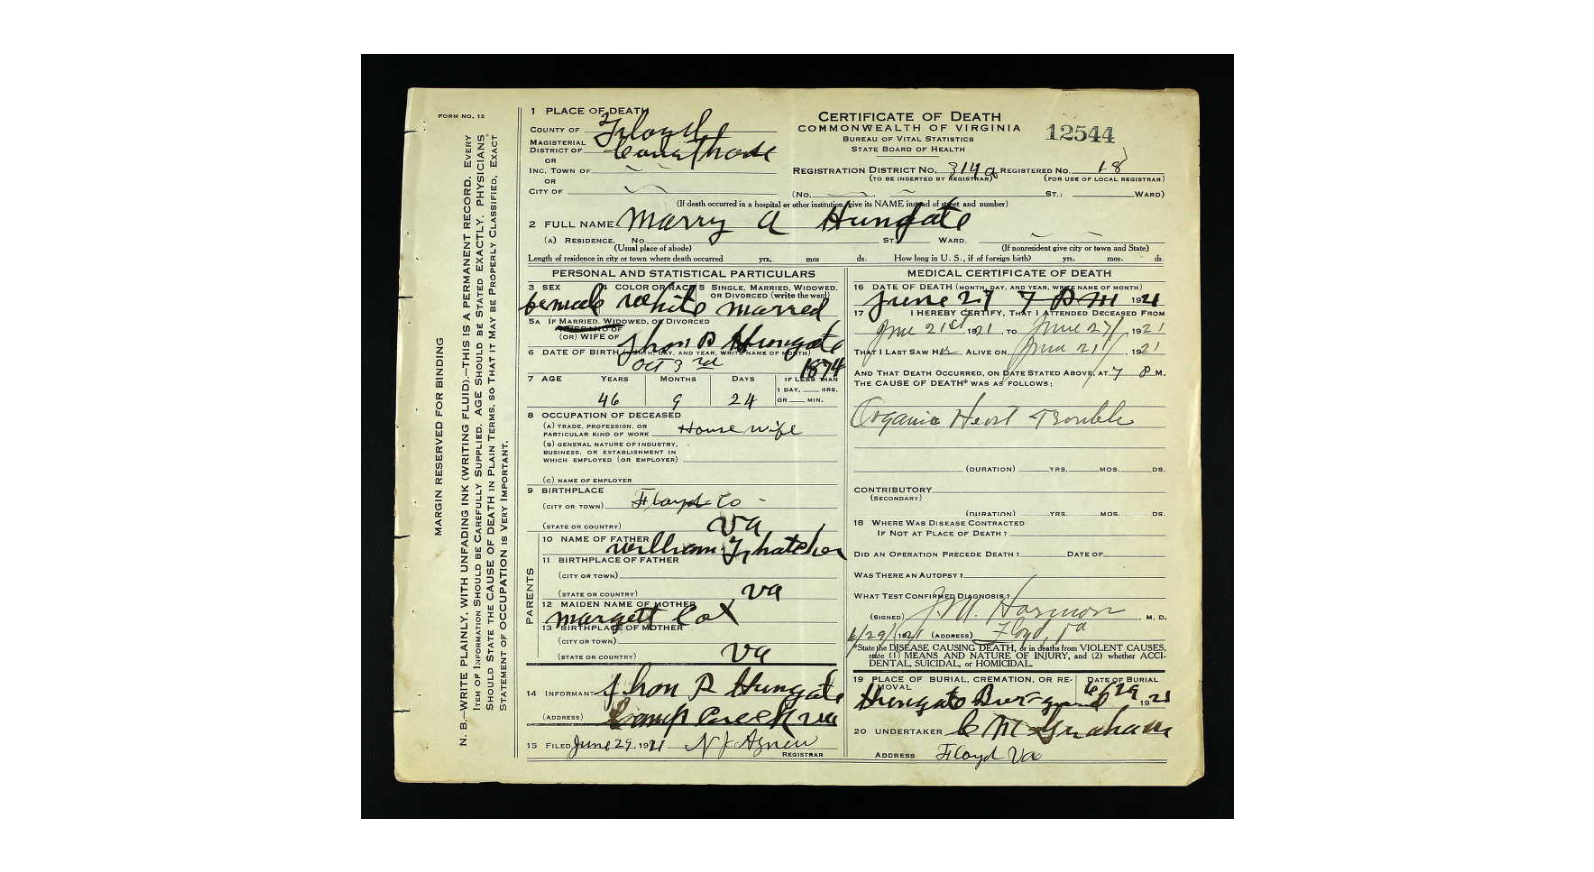 FORM NO. 12
MARGIN RESERVED FOR BINDING
N. B.—WRITE PLAINLY, WITH UNFADING INK (WRITING FLUID).—THIS IS A PERMANENT RECORD. EVERY
ITEM OF INFORMATION SHOULD BE CAREFULLY SUPPLIED. AGE SHOULD BE STATED EXACTLY. PHYSICIANS
SHOULD STATE THE CAUSE OF DEATH IN PLAIN TERMS, SO THAT IT MAY BE PROPERLY CLASSIFIED. EXACT
STATEMENT OF OCCUPATION IS VERY IMPORTANT.
1 PLACE OF DEATH
COUNTY OF Floyd
MAGISTERIAL
DISTRICT OF Courthouse
OR
INC. TOWN OF
OR
CITY OF
CERTIFICATE OF DEATH
COMMONWEALTH OF VIRGINIA
BUREAU OF VITAL STATISTICS
STATE BOARD OF HEALTH
12544
REGISTRATION DISTRICT NO. 314a REGISTERED NO. 18
(TO BE INSERTED BY REGISTRAR) (FOR USE OF LOCAL REGISTRAR)
(No. ST.; WARD)
(If death occurred in a hospital or other institution, give its NAME instead of street and number)
2 FULL NAME Marry A Hungate
(A) RESIDENCE. No. ST. WARD.
(Usual place of abode) (If nonresident give city or town and State)
Length of residence in city or town where death occurred yrs. mos. ds. How long in U. S., if of foreign birth? yrs. mos. ds.
PERSONAL AND STATISTICAL PARTICULARS
3 SEX 4 COLOR OR RACE 5 SINGLE, MARRIED, WIDOWED,
OR DIVORCED (write the word)
female white marred
5A IF MARRIED, WIDOWED, OR DIVORCED
HUSBAND OF
(OR) WIFE OF Jhon P Hungate
6 DATE OF BIRTH (MONTH, DAY, AND YEAR, WRITE NAME OF MONTH)
Oct 3rd 1874
7 AGE YEARS MONTHS DAYS IF LESS THAN
1 DAY, HRS.
OR MIN.
46 9 24
8 OCCUPATION OF DECEASED
(A) TRADE, PROFESSION, OR
PARTICULAR KIND OF WORK House wife
(B) GENERAL NATURE OF INDUSTRY,
BUSINESS, OR ESTABLISHMENT IN
WHICH EMPLOYED (OR EMPLOYER)
(C) NAME OF EMPLOYER
9 BIRTHPLACE
(CITY OR TOWN) Floyd Co -
(STATE OR COUNTRY) Va
PARENTS
10 NAME OF FATHER William Thatcher
11 BIRTHPLACE OF FATHER
(CITY OR TOWN)
(STATE OR COUNTRY) Va
12 MAIDEN NAME OF MOTHER
Margett Cox
13 BIRTHPLACE OF MOTHER
(CITY OR TOWN)
(STATE OR COUNTRY) Va
14 INFORMANT Jhon P Hungate
(ADDRESS) Camp Creek Va
15 FILED June 29, 1921 N J Agnew
REGISTRAR
MEDICAL CERTIFICATE OF DEATH
16 DATE OF DEATH (MONTH, DAY, AND YEAR, WRITE NAME OF MONTH)
June 27 7 PM 1921
17 I HEREBY CERTIFY, THAT I ATTENDED DECEASED FROM
June 21st, 1921, TO June 27, 1921
THAT I LAST SAW Her ALIVE ON June 21, 1921
AND THAT DEATH OCCURRED, ON DATE STATED ABOVE, AT 7 P M.
THE CAUSE OF DEATH* WAS AS FOLLOWS:
Organic Heart Trouble
(DURATION) YRS. MOS. DS.
CONTRIBUTORY
(SECONDARY)
(DURATION) YRS. MOS. DS.
18 WHERE WAS DISEASE CONTRACTED
IF NOT AT PLACE OF DEATH?
DID AN OPERATION PRECEDE DEATH? DATE OF
WAS THERE AN AUTOPSY?
WHAT TEST CONFIRMED DIAGNOSIS?
(SIGNED) J.M. Harmon, M. D.
6/29/1921 (ADDRESS) Floyd, Va
*State the DISEASE CAUSING DEATH, or in deaths from VIOLENT CAUSES,
state (1) MEANS AND NATURE OF INJURY, and (2) whether ACCI-
DENTAL, SUICIDAL, or HOMICIDAL.
19 PLACE OF BURIAL, CREMATION, OR RE-
MOVAL
DATE OF BURIAL
Hungate 6/29 1921
20 UNDERTAKER C M Graham
ADDRESS Floyd Va